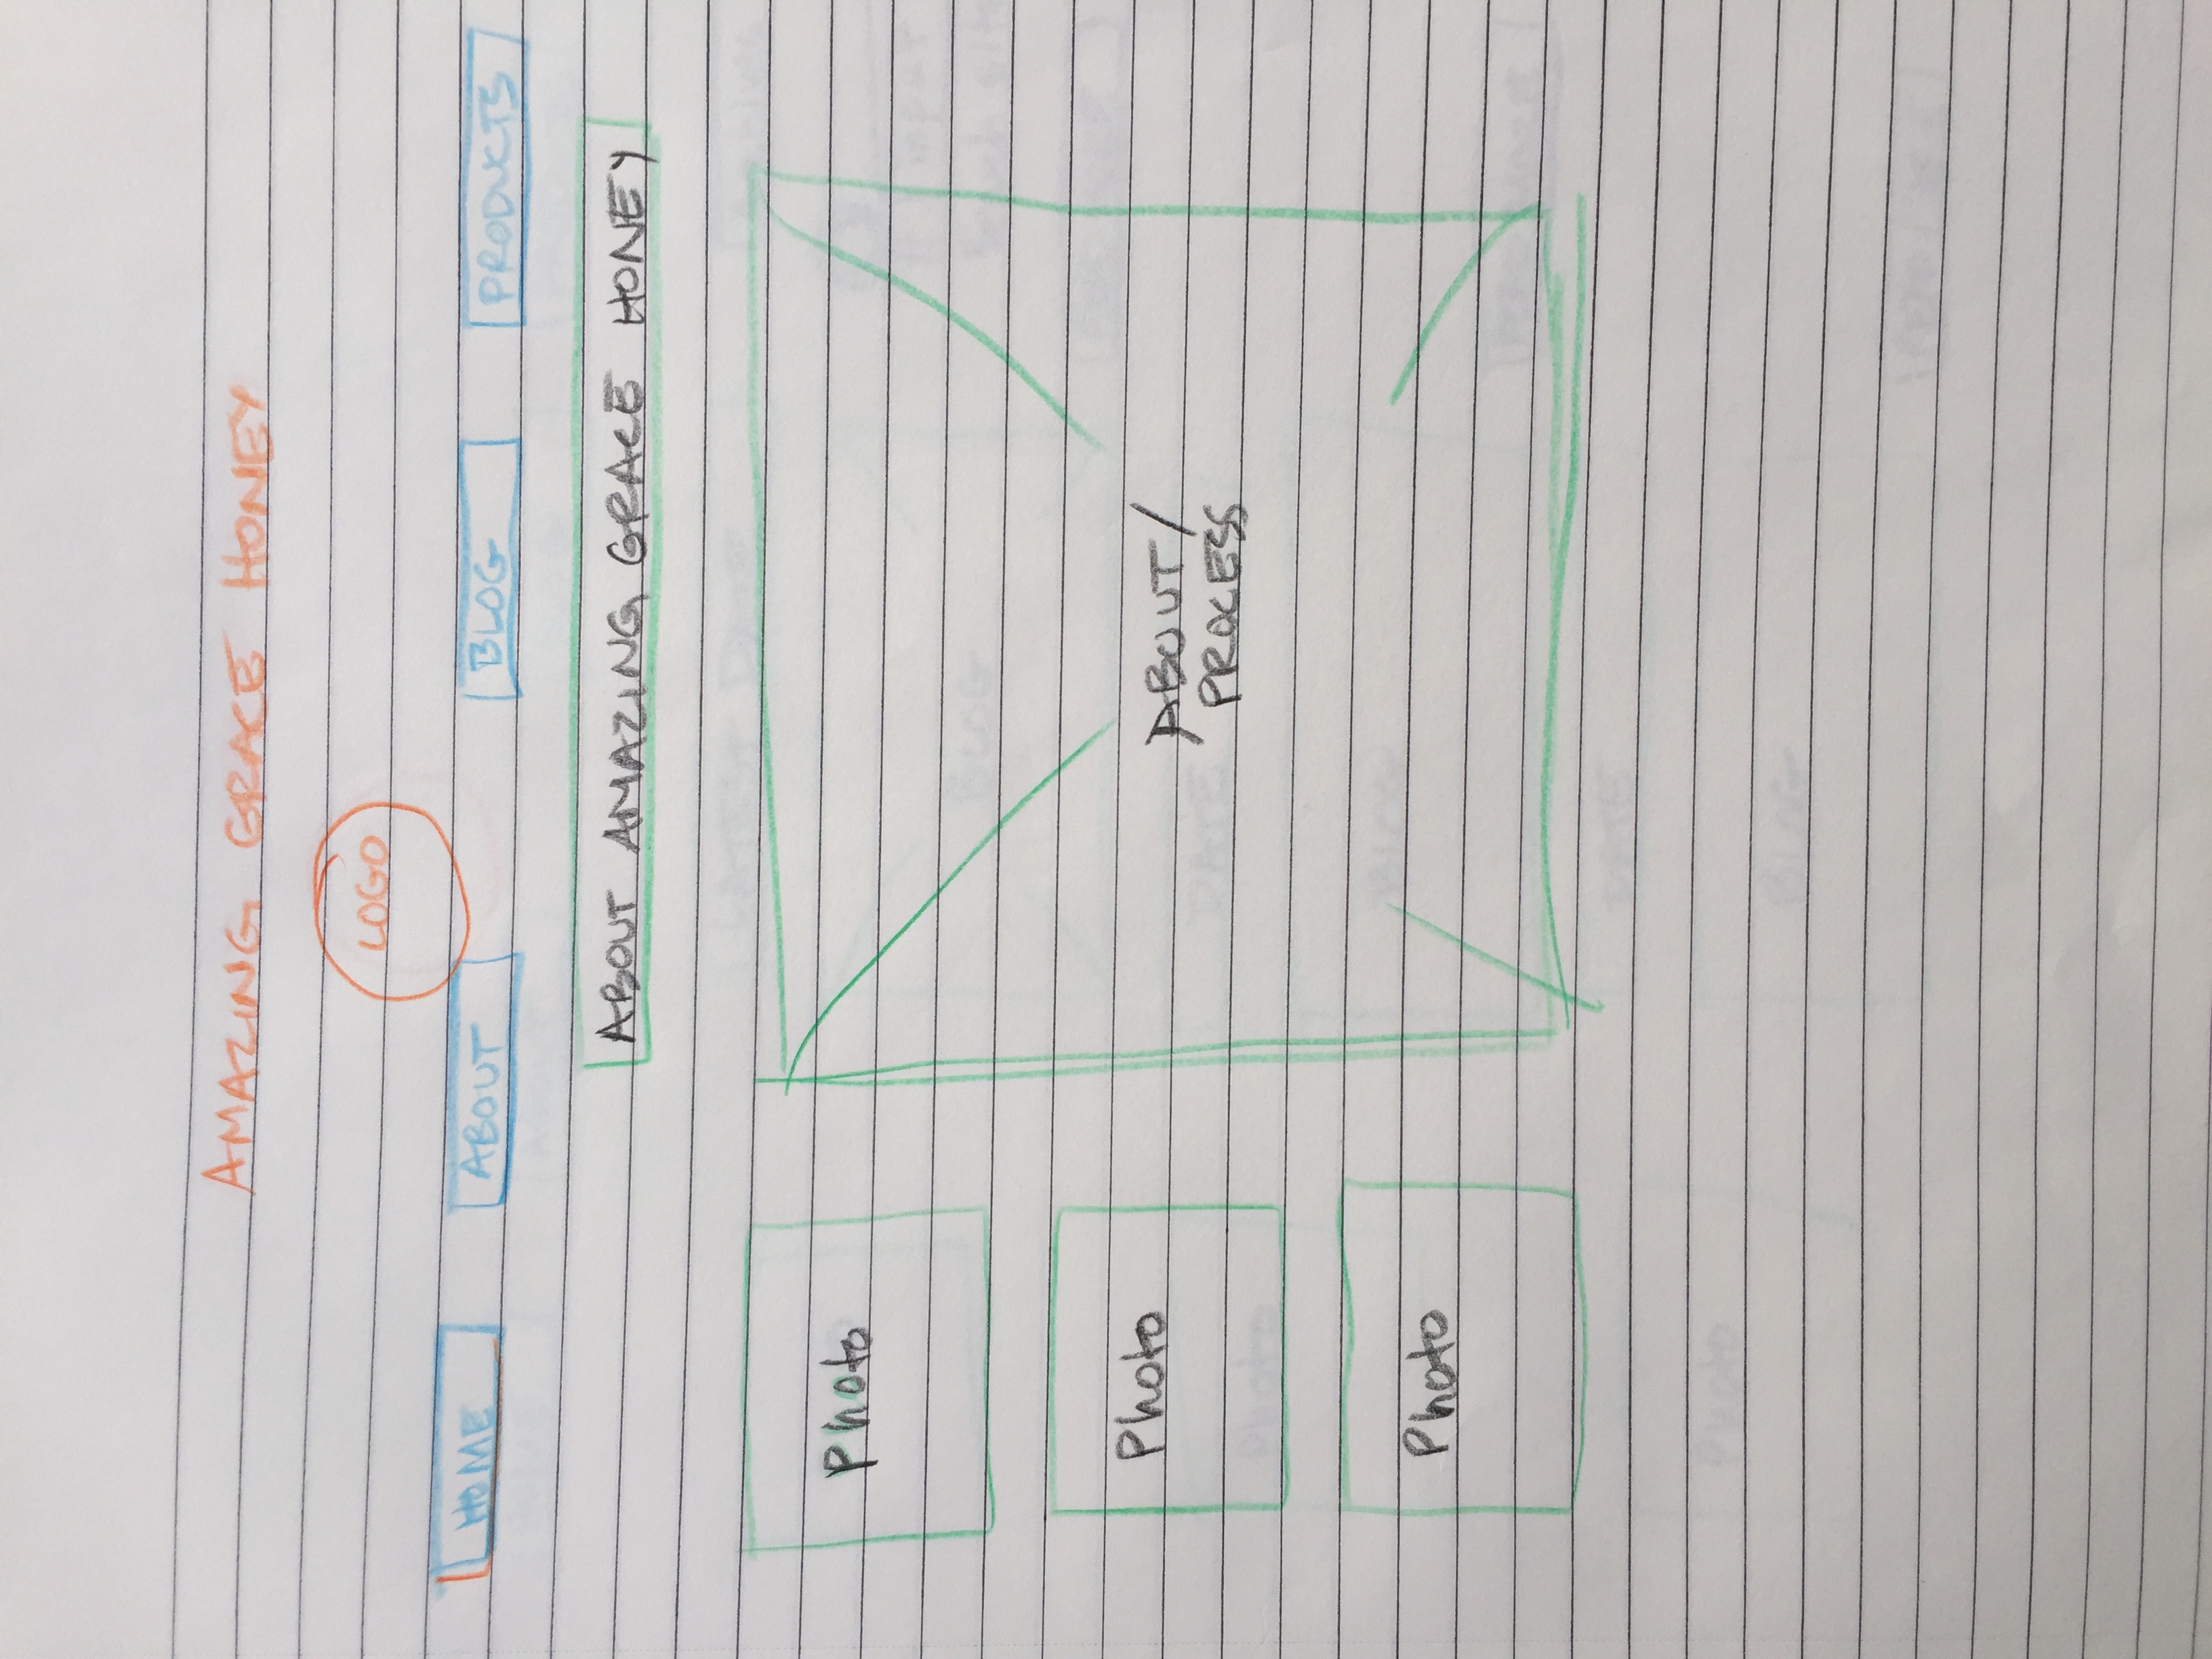 AMAZING GRACE HONEY
LOGO
HOME ABOUT BLOG PRODUCTS
ABOUT AMAZING GRACE HONEY
Photo
Photo
Photo
ABOUT /
PROCESS